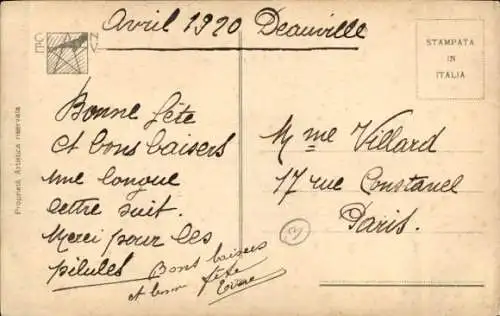 Avril 1920 Deauville
C E N V
STAMPATA
IN
ITALIA
Proprietà Artistica riservata
Bonne fête
et bons baisers
une longue
lettre suit.
Merci pour les
pilules
Bons baisers
et bonne fête
Mme Villard
17 rue Constanel
Paris.